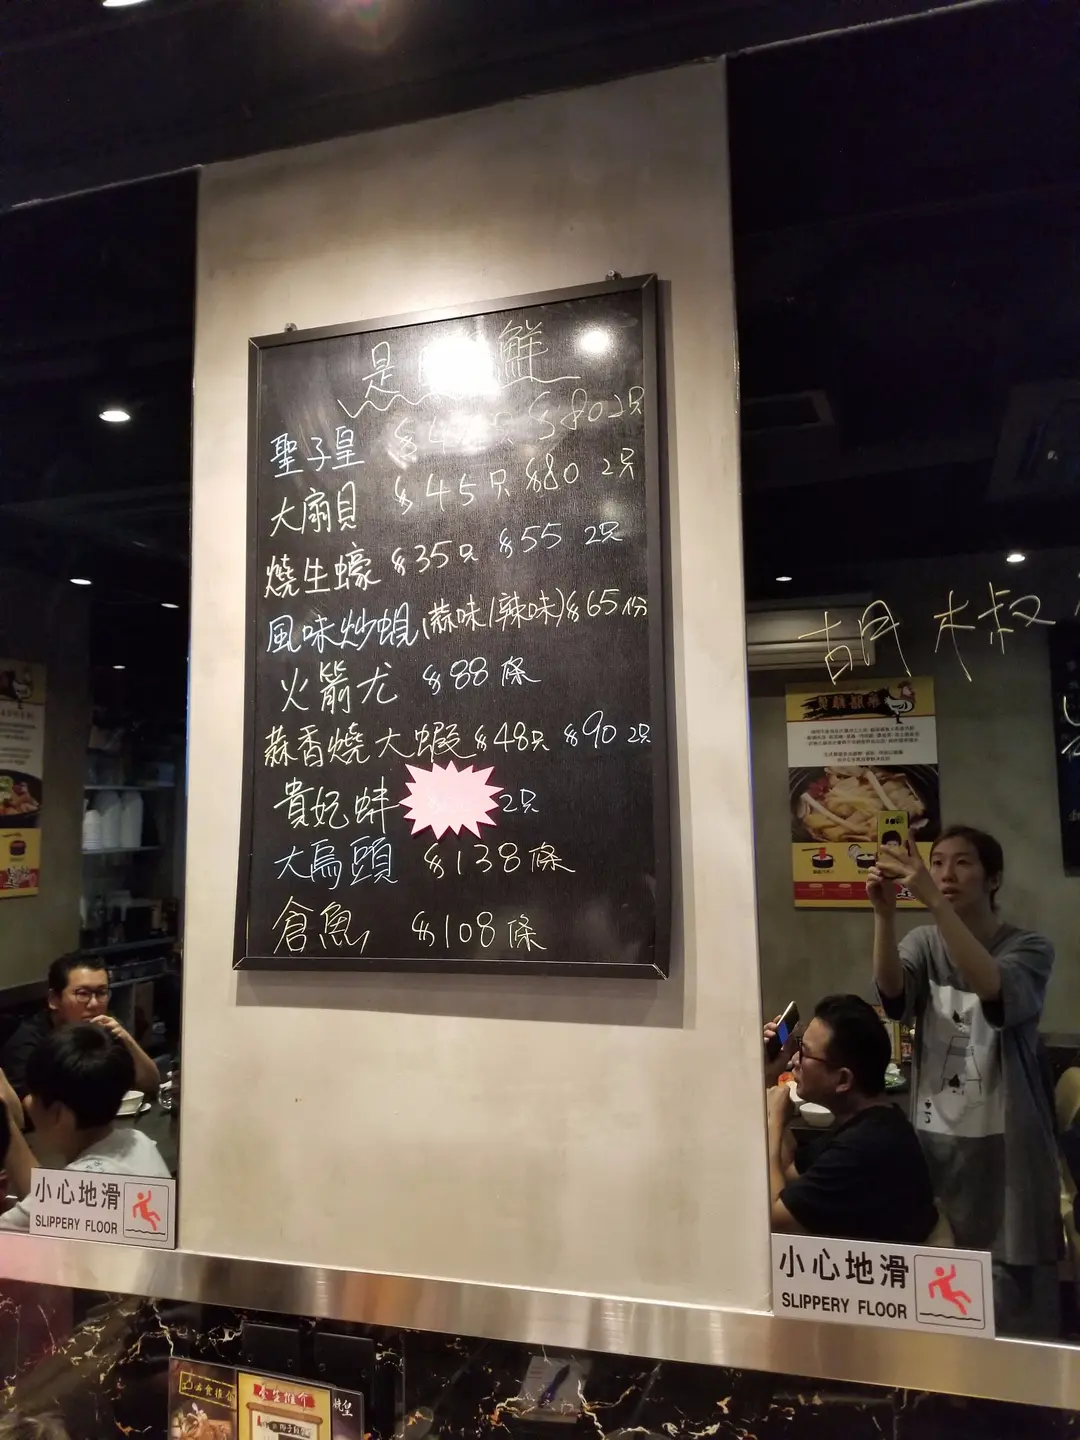 是 鮮
聖子皇 $4 只 $80 2只
大扇貝 $45只 $80 2只
燒生蠔 $35只 $55 2只
風味炒蜆(蒜味/辣味)$65份
火箭尤 $88條
蒜香燒大蝦 $48只 $90 2只
貴妃蚌 2只
大烏頭 $138條
倉魚 $108條
胡椒
小心地滑
SLIPPERY FLOOR
小心地滑
SLIPPERY FLOOR